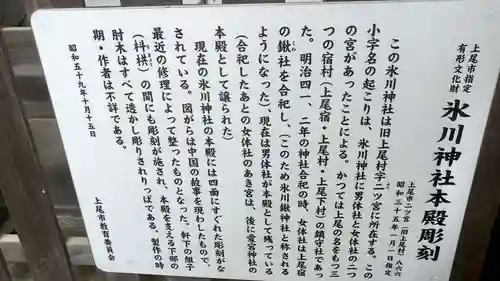 上尾市指定
有形文化財
氷川神社本殿彫刻
上尾市二ツ宮(旧上尾村)八六六
昭和三十五年一月一日指定
この氷川神社は旧上尾村字二ツ宮に所在する。この
小字名の起こりは、氷川神社に男体社と女体社の二つ
の宮があったことによる。かつては上尾の名をもつ三
つの宿村(上尾宿・上尾村・上尾下村)の鎮守社であっ
た。明治四一、二年の神社合祀の時、女体社は上尾宿
の鍬社を合祀し、(このため氷川鍬神社と称される
ようになった)現在は男体社が本殿として残っている
(合祀したあとの女体社のあき宮は、後に愛宕神社の
本殿として譲られた)
現在の氷川神社の本殿には四面にすぐれた彫刻がな
されている。図がらは中国の故事を現わしたもので、
最近の修理によって整ったものとなった。軒下の組子
(枓栱)の間にも彫刻が施され、本殿を支える下部の
肘木はすべて透かし彫りされりっぱである。製作の時
期・作者は不詳である。
昭和五十九年十月十五日
上尾市教育委員会